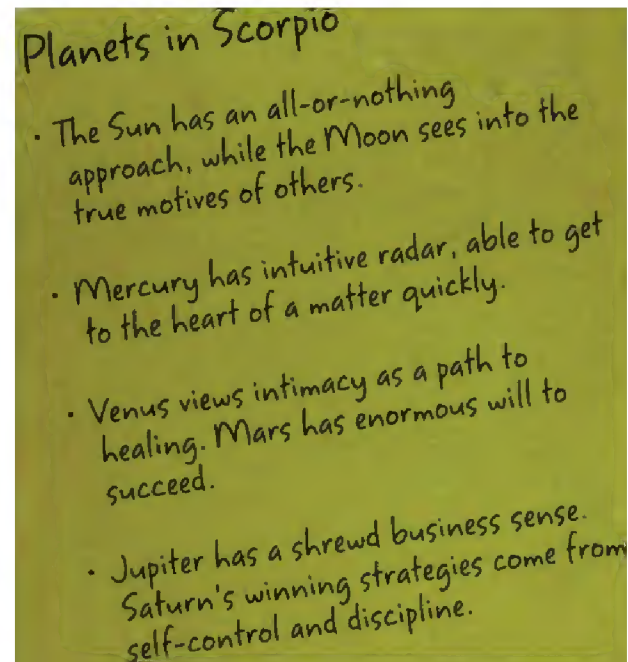 Planets in Scorpio
· The Sun has an all-or-nothing
approach, while the Moon sees into the
true motives of others.
· Mercury has intuitive radar, able to get
to the heart of a matter quickly.
· Venus views intimacy as a path to
healing. Mars has enormous will to
succeed.
· Jupiter has a shrewd business sense.
Saturn's winning strategies come from
self-control and discipline.